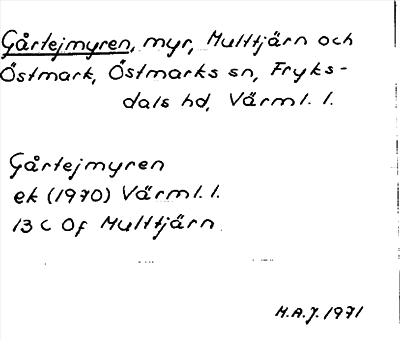 Gårtejmyren, myr, Multtjärn och
Östmark, Östmarks sn, Fryks-
dals hd, Värml. l.
Gårtejmyren
ek (1970) Värml. l.
13 C 0f Multtjärn
H.A.J. 1971